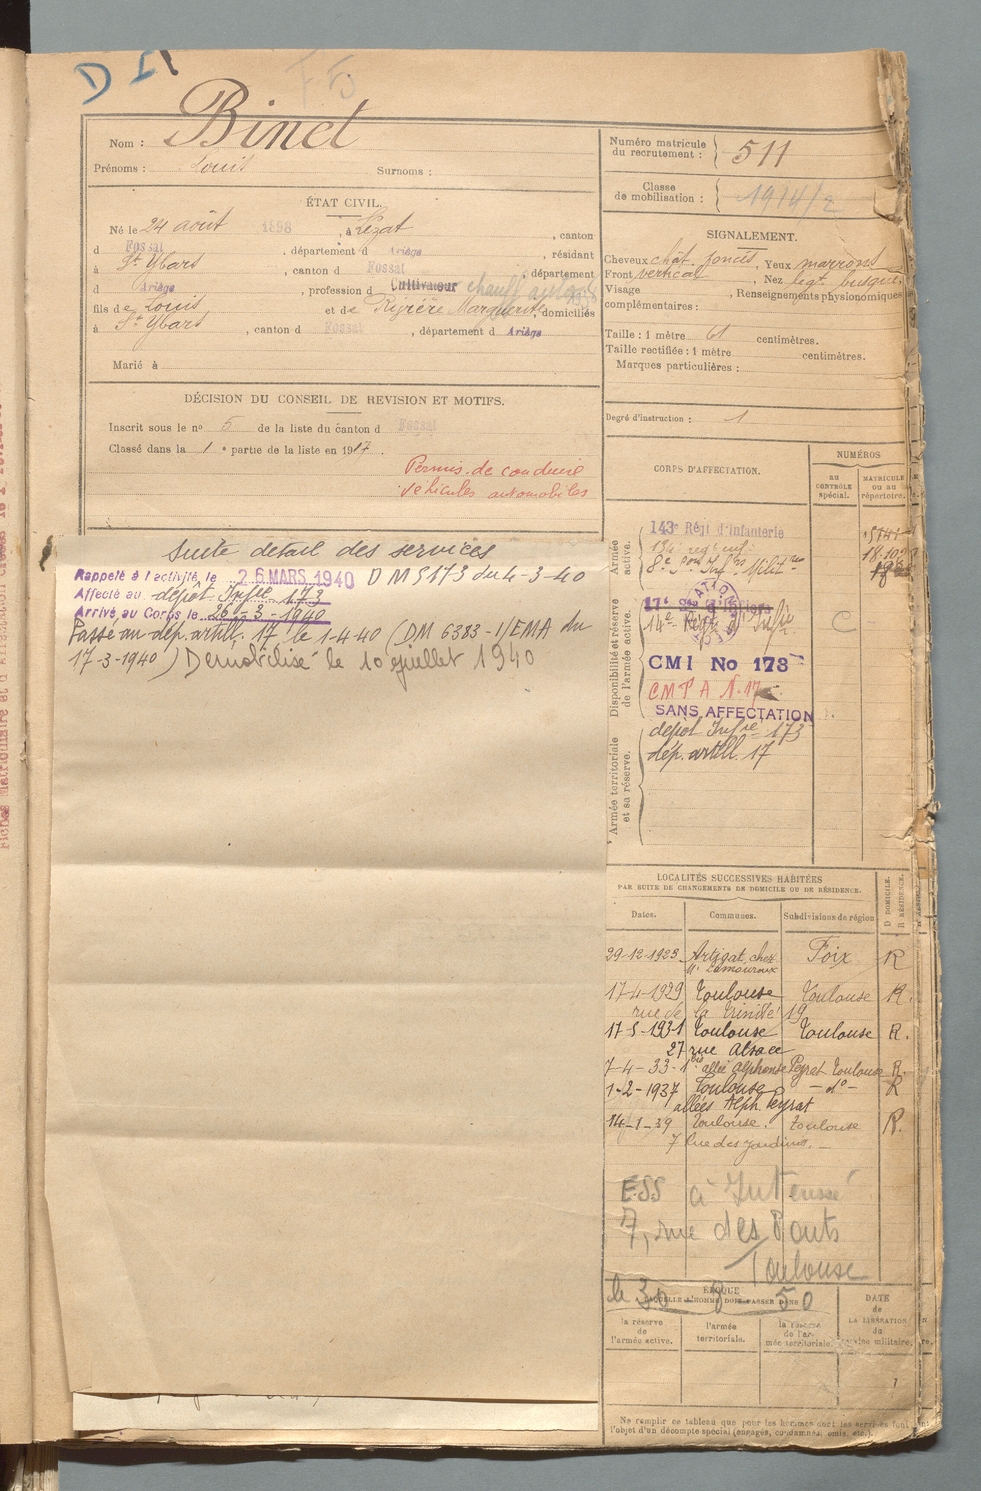 D
F 5
Nom : Binet
Prénoms : Louis Surnoms :
ÉTAT CIVIL.
Né le 24 août 1898, à Lézat, canton
d Fossat, département d Ariège, résidant
à St Ybars, canton d Fossat, département
d Ariège, profession d Cultivateur chauff
fils de Louis et de Marguerite, domiciliés
à St Ybars, canton d Fossat, département d Ariège
Marié à
DÉCISION DU CONSEIL DE REVISION ET MOTIFS.
Inscrit sous le nº 5 de la liste du canton d Fossat
Classé dans la 1e partie de la liste en 1917.
Permis de conduire
véhicules automobiles
suite détail des services
Rappelé à l'activité le 26 MARS 1940 DM 5173 du 4-3-40
Affecté au dépôt Infie 173
Arrivé au Corps le 26-3-1940
Passé au dép. artill. 17 le 1-4-40 (DM 6383-1/EMA du
17-3-1940) Démobilisé le 10 juillet 1940
Numéro matricule
du recrutement : 511
Classe
de mobilisation : 1914/2
SIGNALEMENT.
Cheveux chât. foncés, Yeux marrons
Front vertical, Nez légt busqué
Visage , Renseignements physionomiques
complémentaires :
Taille : 1 mètre 61 centimètres.
Taille rectifiée : 1 mètre centimètres.
Marques particulières :
Degré d'instruction : 1
CORPS D'AFFECTATION.
NUMÉROS
AU CONTRÔLE spécial.
MATRICULE ou au répertoire.
Armée active.
143e Régt d'Infanterie
Disponibilité et réserve de l'armée active.
14e Régt d'Infie
C
CMI No 173
CMTA N. 17
SANS AFFECTATION
Armée territoriale et sa réserve.
dépôt Infie 173
dép. artill. 17
LOCALITÉS SUCCESSIVES HABITÉES
PAR SUITE DE CHANGEMENTS DE DOMICILE OU DE RÉSIDENCE.
Dates. Communes. Subdivisions de région D DOMICILE. R RÉSIDENCE.
29-12-1925 Artigat, chez Foix R
Mr Lamouroux
17-4-1929 Toulouse Toulouse R.
rue de la Trinité 19
17-5-1931 Toulouse Toulouse R.
27 rue Alsace
7-4-33 allée Alphonse Peyrat Toulouse R.
1-2-1937 Toulouse - do - R
allées Alph. Peyrat
14-1-39 Toulouse. Toulouse R.
7 Rue des Jardins.
ESS à
7, rue des Ponts
Toulouse
le 30 8-50
ÉPOQUE
À LAQUELLE L'HOMME DOIT PASSER DANS
la réserve de l'armée active.
l'armée territoriale.
la réserve de l'armée territoriale.
DATE de LA LIBÉRATION du service militaire.
Ne remplir ce tableau que pour les hommes dont les services font
l'objet d'un décompte spécial (engagés, condamnés, omis, etc.).